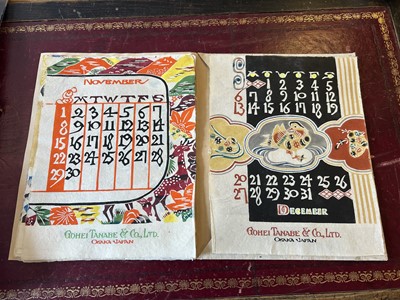 NOVEMBER
M T W T F S
1 2 3 4 5 6 7
8 9 10 11 12 13 14
15 16 17 18 19 20 21
22 23 24 25 26 27 28
29 30
GOHEI TANABE & CO., LTD.
OSAKA JAPAN
M T W T F S
1 2 3 4 5
6 7 8 9 10 11 12
13 14 15 16 17 18 19
20 21 22 23 24 25 26
27 28 29 30 31
DECEMBER
GOHEI TANABE & CO., LTD.
OSAKA JAPAN